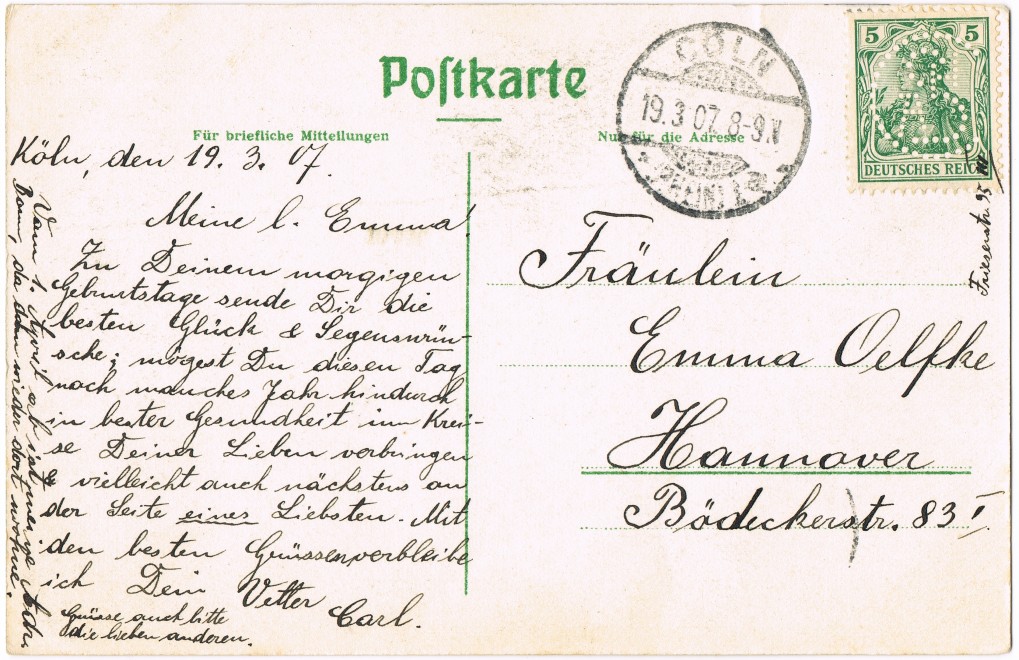 Postkarte
Für briefliche Mitteilungen
Nur für die Adresse
CÖLN
19.3.07. 8-9.N
(RHEIN) 1
5 5
DEUTSCHES REICH
Köln, den 19. 3. 07.
Meine l. Emma!
Zu Deinem morgigen
Geburtstage sende Dir die
besten Glück & Segenswün-
sche; mögest Du diesen Tag
noch manches Jahr hindurch
in bester Gesundheit im Krei-
se Deiner Lieben verbringen
& vielleicht auch nächstens an
der Seite eines Liebsten. Mit
den besten Grüssen verbleibe
ich Dein Vetter
Carl.
Grüsse auch bitte
die lieben anderen.
Vom 1. April ab ist meine Adr.
Bonn, da dann wieder dort wohne.
Friesenstr. 95 III
Fräulein
Emma Oelfke
Hannover
Bödeckerstr. 83 I